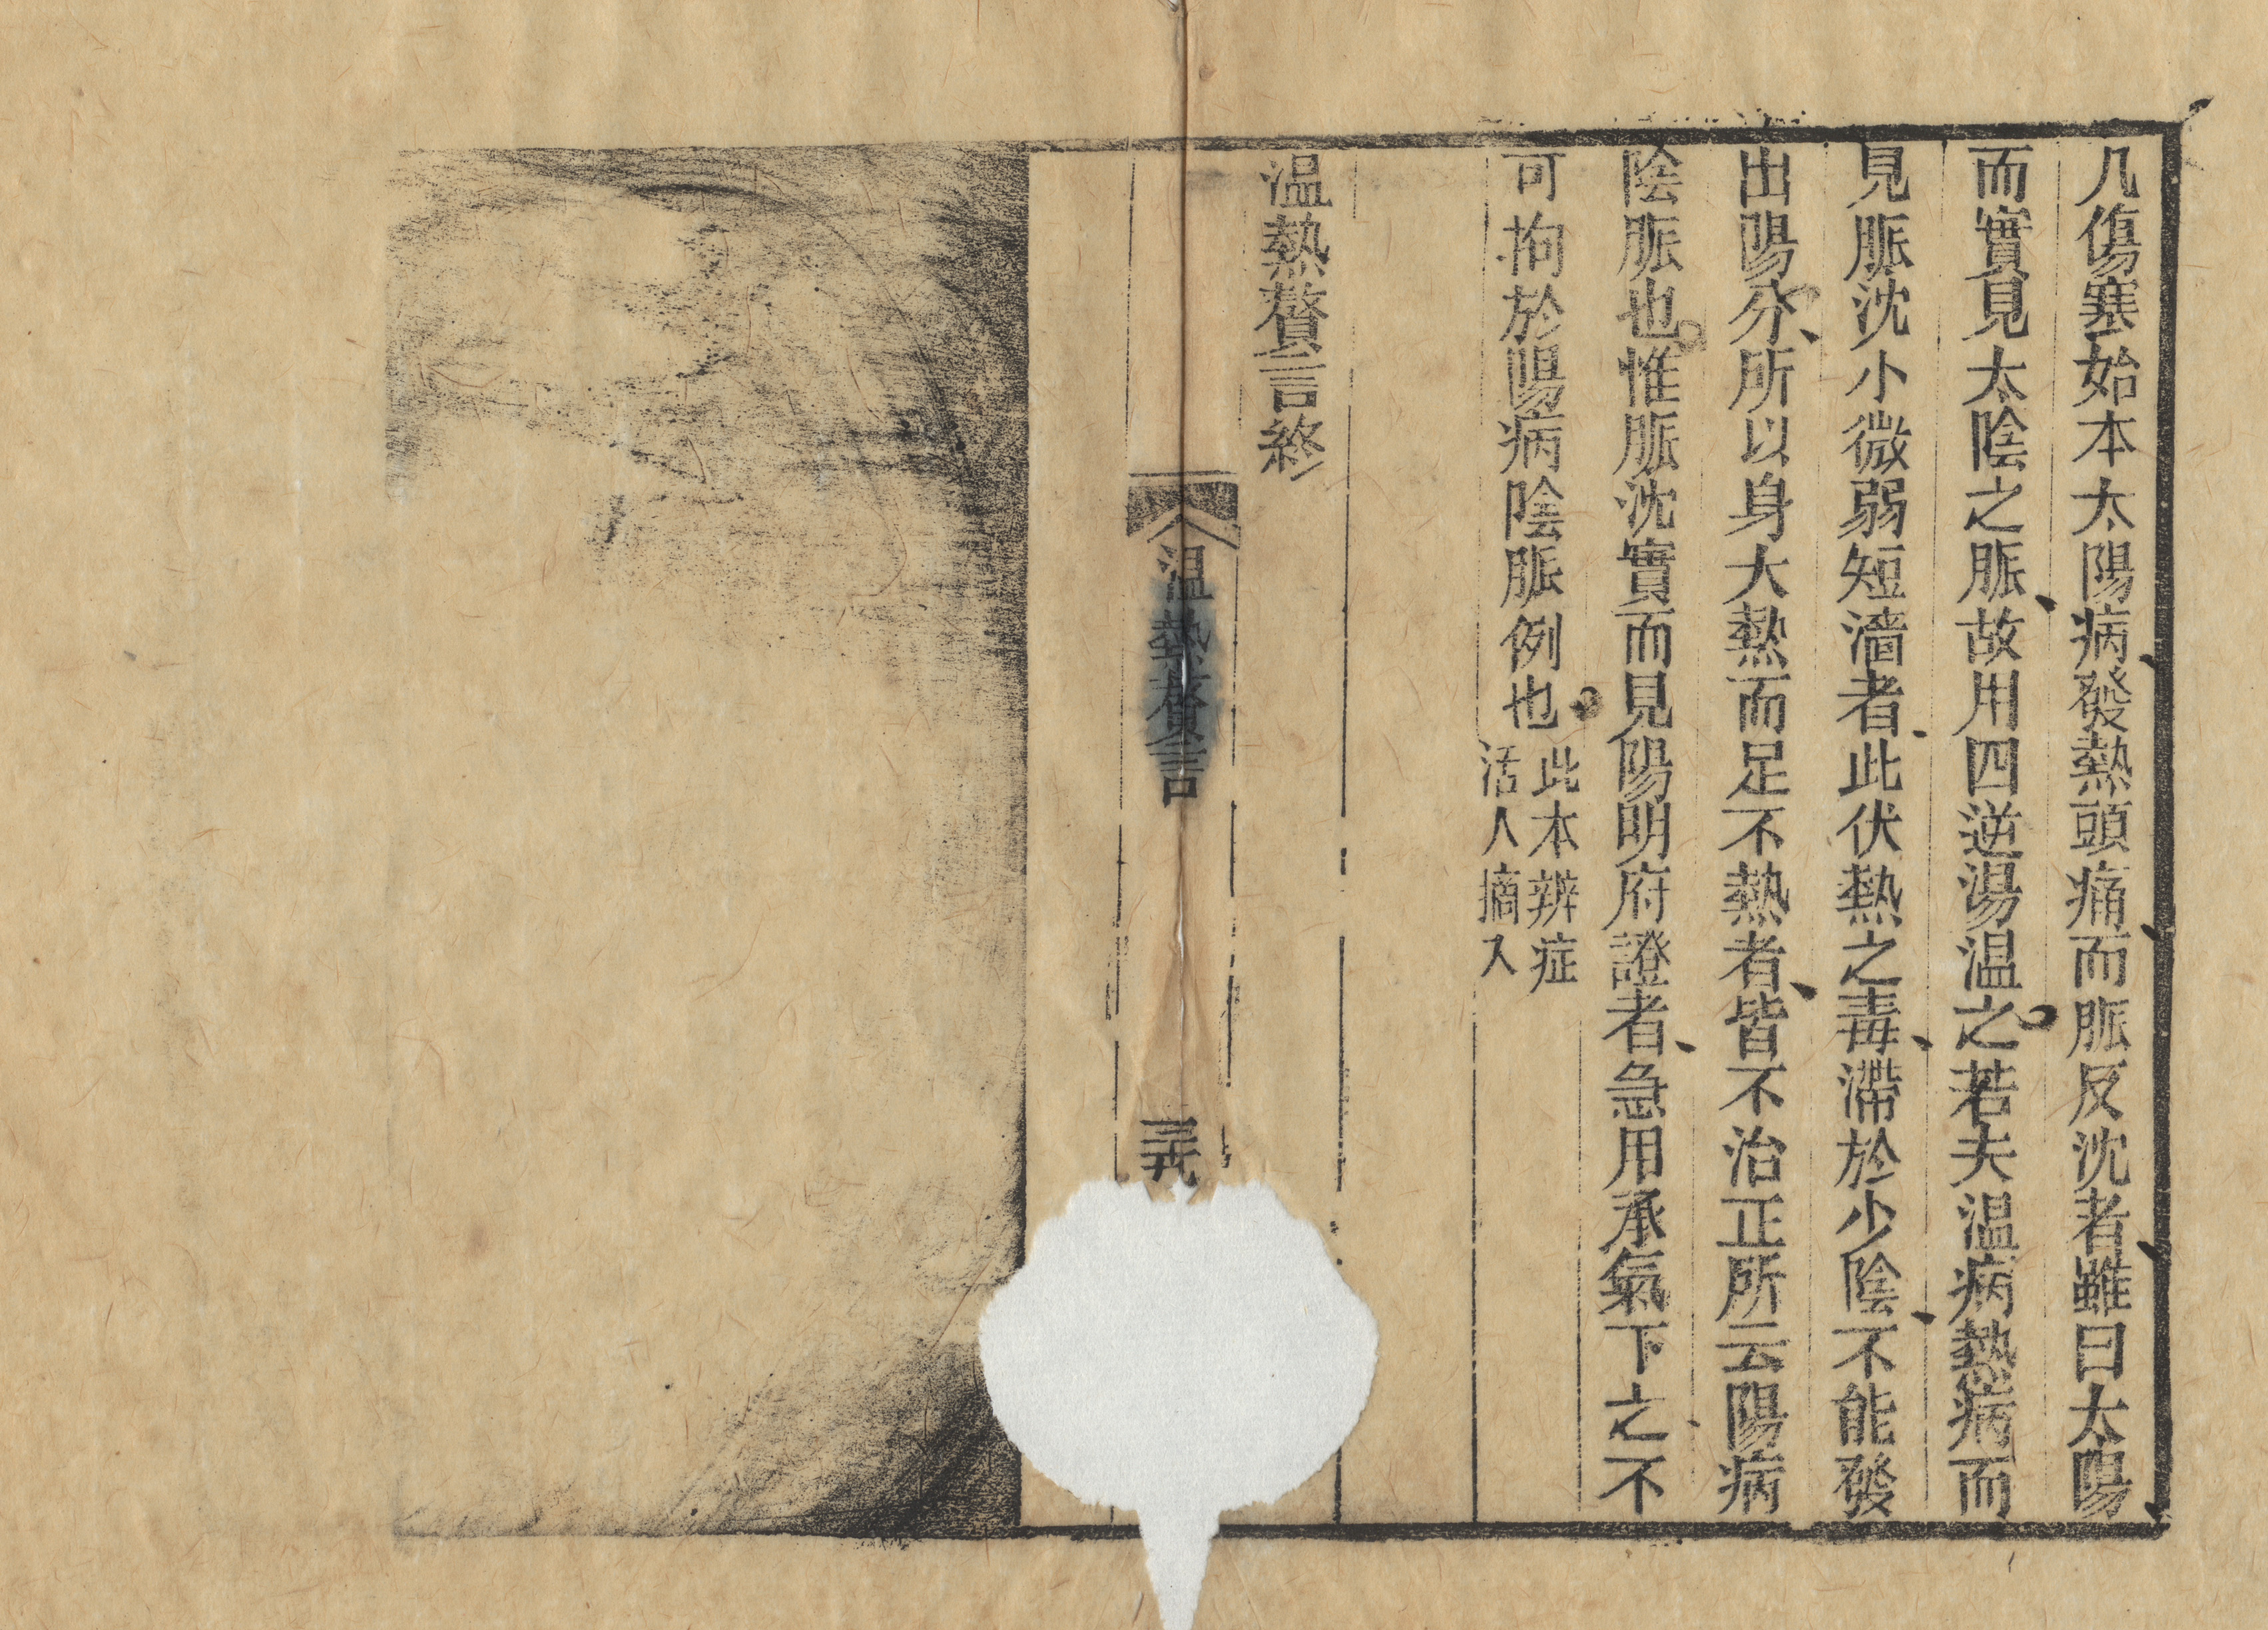 凡傷寒始本太陽病發熱頭痛而脈反沈者雖曰太陽
而實見太陰之脈故用四逆湯温之若夫温病熱病而
見脈沈小微弱短濇者此伏熱之毒滯於少陰不能發
出陽分所以身大熱而足不熱者皆不治正所云陽病
陰脈也惟脈沈實而見陽明府證者急用承氣下之不
可拘於陽病陰脈例也
此本辨症
活人摘入
温熱贅言終
温熱贅言